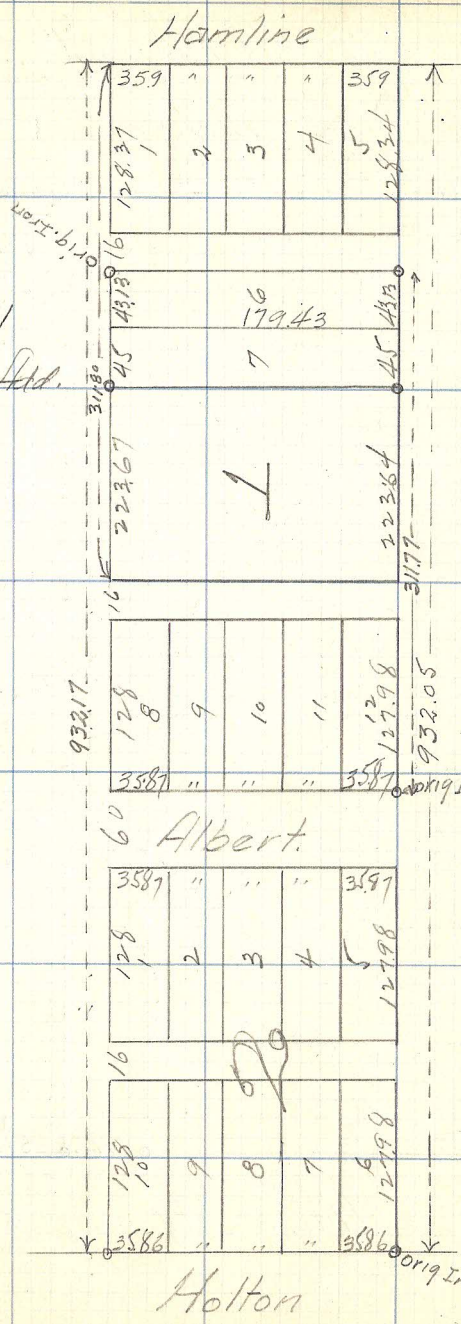 Hamline
359 " " " 359
128.37 128.34
1 2 3 4 5
orig. Iron
16
43.13 6 43.13
179.43
45 7 45
Add.
311.80
223.67 1 223.64
311.77
16
932.17 932.05
128 127.98
8 9 10 11 12
3587 " " " 3587
orig
60 Albert.
3587 " " " 3587
128 127.98
1 2 3 4 5
16
2
128 127.98
10 9 8 7 6
3586 " " " 3586
orig
Holton